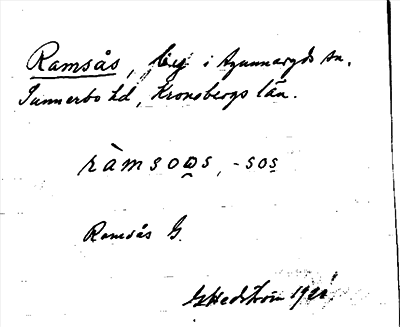 Ramsås, by i Agunnaryds sn.
Sunnerbo hd, Kronobergs län.
ràmsoas, -sos
Ramsås G.
GHedström